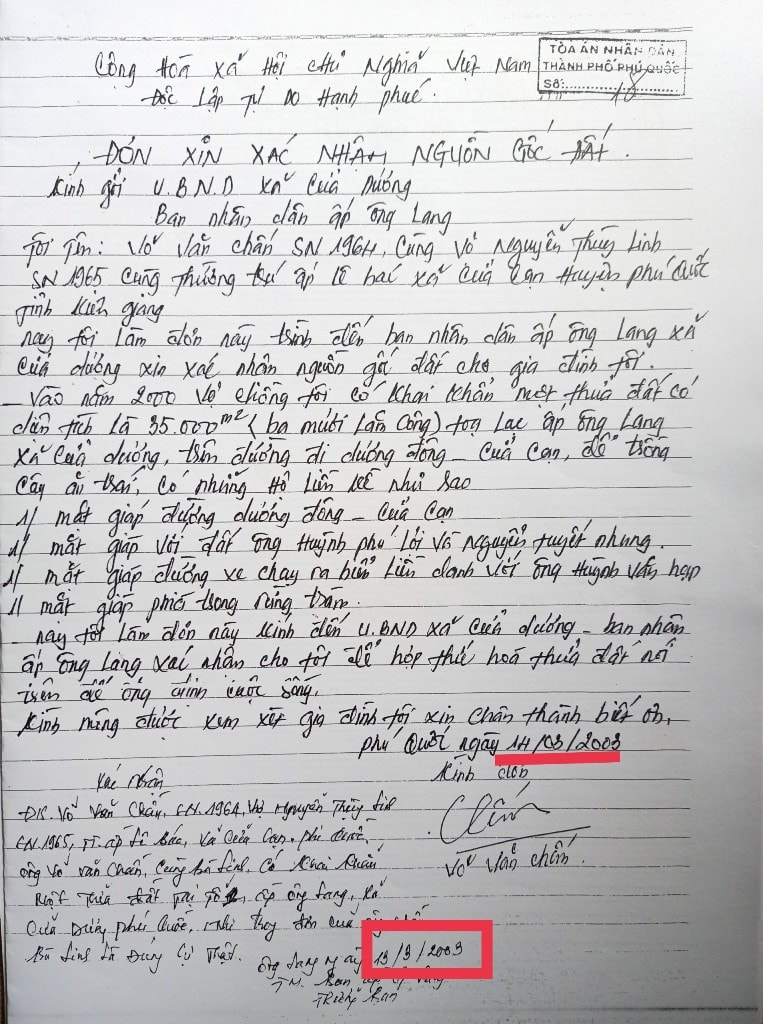 TÒA ÁN NHÂN DÂN
THÀNH PHỐ PHÚ QUỐC
Số: 18
Cộng Hoà Xã Hội Chủ Nghĩa Việt Nam
Độc Lập Tự Do Hạnh phúc.
ĐƠN XIN XÁC NHẬN NGUỒN GỐC ĐẤT.
Kính gởi U.B.N.D Xã Cửa Dương
Ban nhân dân ấp Ông Lang
Tôi Tên: Võ Văn Chấn SN 1964, Cùng Vợ Nguyễn Thùy Linh
SN 1965 Cùng Thường trú ấp lê bác xã Cửa Cạn Huyện phú Quốc
Tỉnh Kiên giang
nay tôi Làm đơn này trình đến ban nhân dân ấp Ông Lang xã
Cửa dương xin xác nhân nguồn gốc đất cho gia đình tôi.
- Vào năm 2000 Vợ chồng tôi có Khai Khẩn một thửa đất có
diện tích Là 35.000m2 (ba mươi Lăm Công) toạ Lạc ấp Ông Lang
xã Cửa dương, trên đường đi dương đông - Cửa Cạn, để trồng
Cây ăn trái, Có những Hộ Liền Kề như sao
1/ mặt giáp đường dương đông - Cửa Cạn
1/ mặt giáp Với đất ông Huỳnh phú Lôi Và Nguyễn tuyết nhung.
1/ mặt giáp đường xe chạy ra biển Liên danh Với ông Huỳnh Văn hạp
1/ mặt giáp phía trong rừng tràm.
- nay tôi Làm đơn này Kính đến U.BND xã Cửa dương - ban nhân
ấp Ông Lang xác nhân cho tôi để hợp thức hoá thửa đất nói
trên để ổng định cuộc sống.
Kính mông được xem xét gia đình tôi xin chân thành biết ơn,
phú Quốc ngày 14/03/2003
Kính đơn
Võ Văn Chấn.
Xác Nhận
Võ Văn Chấn, SN.1964, Vợ Nguyễn Thùy Linh
SN.1965, ấp Lê Bác, Xã Cửa Cạn. Phú Quốc.
Ông Võ Văn Chấn, Cùng Bà Linh, Có Khai Khẩn
Một Thửa đất Tại Tổ 2, ấp Ông Lang, Xã
Cửa Dương Phú Quốc, Như đơn của
Bà Linh Là Đúng Sự Thật.
Ông Lang ngày 13/3/2003
TM. Ban ấp Ông Lang
Trưởng Ban